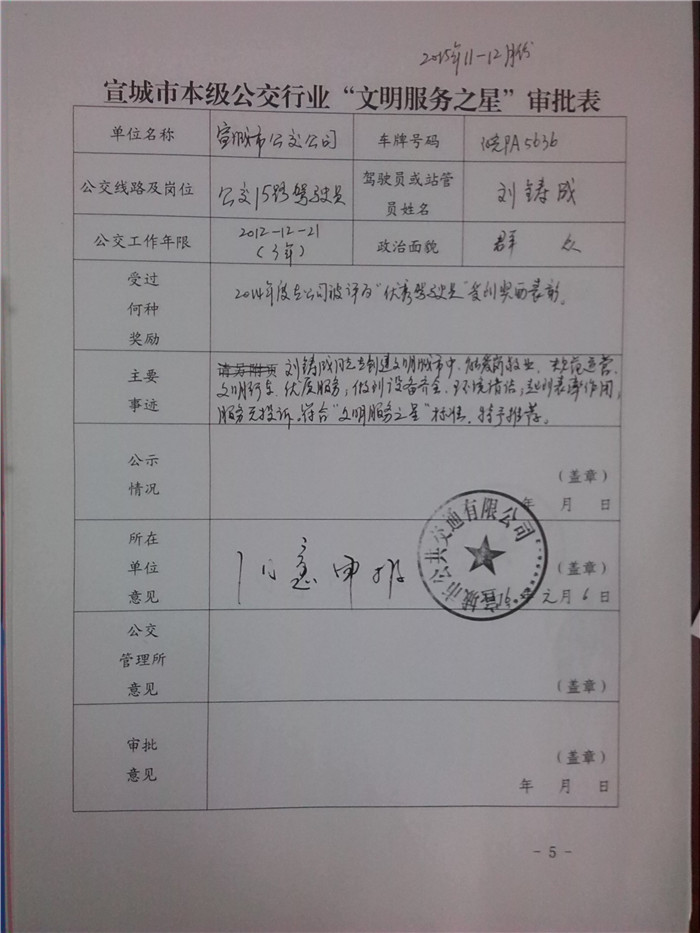 2015年11-12月份
宣城市本级公交行业“文明服务之星”审批表
单位名称 宣城市公交公司 车牌号码 皖PA5636
公交线路及岗位 公交15路驾驶员 驾驶员或站管员姓名 刘铸成
公交工作年限 2012-12-21(3年) 政治面貌 群众
受过
何种
奖励
2014年度在公司被评为“优秀驾驶员”受到奖励表彰。
主要
事迹
请另附页 刘铸成同志在创建文明城市中,能爱岗敬业、规范运营、
文明行车、优质服务,做到设备齐全、环境清洁,起到表率作用,
服务无投诉。符合“文明服务之星”标准,特予推荐。
公示
情况
(盖章)
年 月 日
所在
单位
意见
同意申报
宣城市公共交通有限公司
(盖章)
年元月6日
公交
管理所
意见
(盖章)
审批
意见
(盖章)
年 月 日
- 5 -